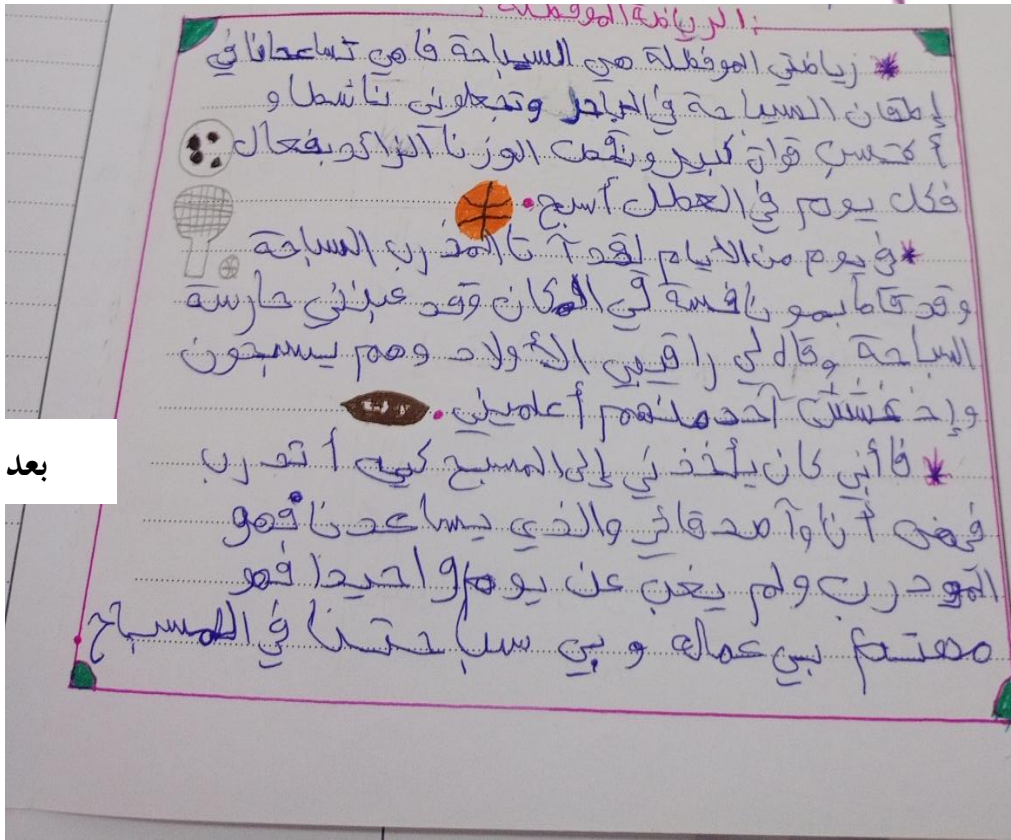 الرياضة الموفظلة:
رياضتي الموفظلة هي السباحة فاهي تساعدانا في
إطقان السباحة في البحر وتجعلوني ناشطا و
أكتسب قوات كبير ونقصت الوزنا آلزائد وبفعال
فكل يوم في العطل أسبح.
في يوم من الايام لقد آتا المذرب السباحة
وقد قاما بمو نافسة في المكان وقد عينني حارسة
السباحة وقال لي راقيبي الأولاد وهم يسبحون
وإذ غشش آحد منهم أعلميني.
فاأبي كان يأخذني إلى المسبح كيه أتدرب
فيه أنا وآصدقائي والذي يساعدنا فهو
المودرب ولم يغب عن يوم واحيدا فهو
مهتم بي عماله و بي سباحتنا في المسباح
بعد